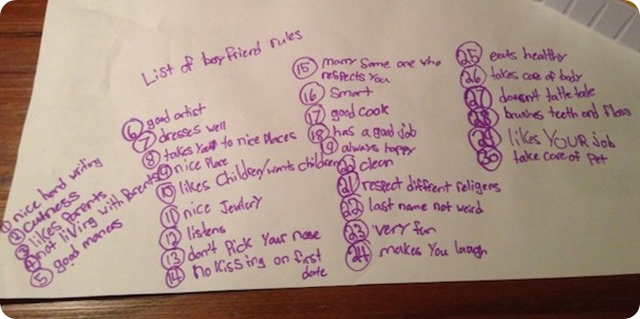 List of boyfriend rules
① nice hand writing
② cuteness
③ likes Parents
④ not living with Parents
⑤ good maners
⑥ good artist
⑦ dresses well
⑧ takes you to nice Places
⑨ nice Place
⑩ likes Children/wants children
⑪ nice Jewlery
⑫ listens
⑬ don't Pick Your nose
⑭ no kissing on first
date
⑮ marry some one who
respects You
⑯ Smart
⑰ good cook
⑱ has a good job
⑲ always happy
⑳ clean
㉑ respect diffrent religens
㉒ last name not weird
㉓ very fun
㉔ makes You laugh
㉕ eats healthy
㉖ takes care of body
㉗ doesn't tattle tale
㉘ brushes teeth and Floss
㉙ likes YOUR job
㉚ take care of Pet